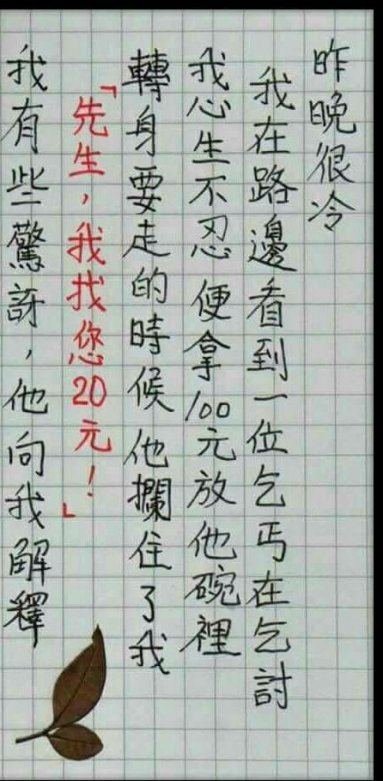 昨晚很冷
我在路邊看到一位乞丐在乞討
我心生不忍便拿100元放他碗裡
轉身要走的時候他攔住了我
「先生,我找您20元!」
我有些驚訝,他向我解釋